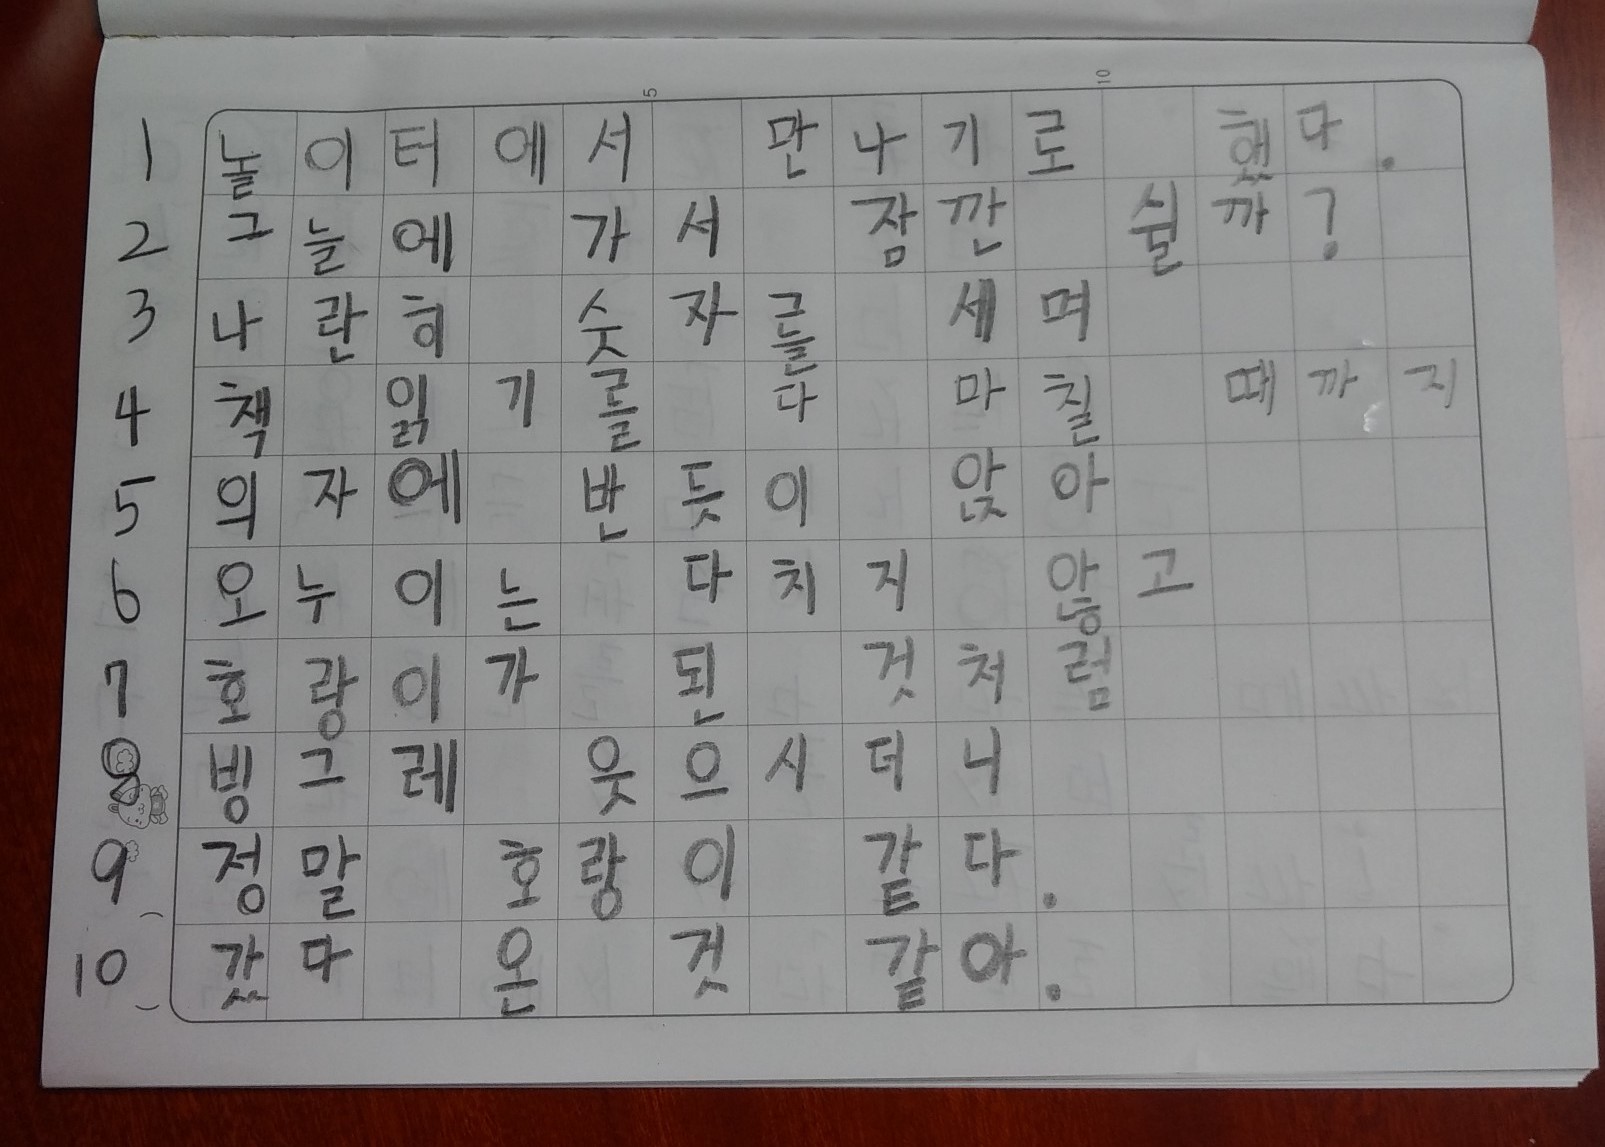 5 10
1 놀이터에서 만나기로 했다.
2 그늘에 가서 잠깐 쉴까?
3 나란히 숫자를 세며
4 책 읽기를 다 마칠 때까지
5 의자에 반듯이 앉아
6 오누이는 다치지 않고
7 호랑이가 된 것처럼
8 빙그레 웃으시더니
9 정말 호랑이 같다.
10 갔다 온 것 같아.